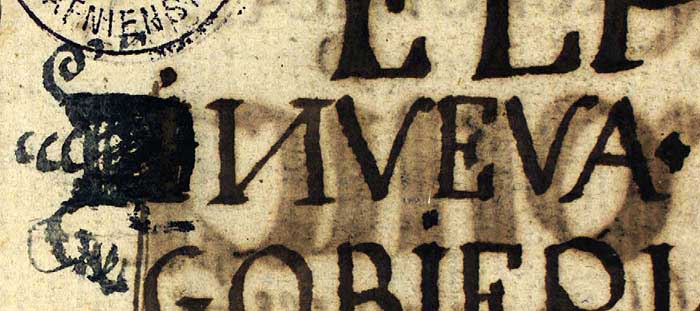 AFNIENS
EL P
i NVEVA·
GOBiER